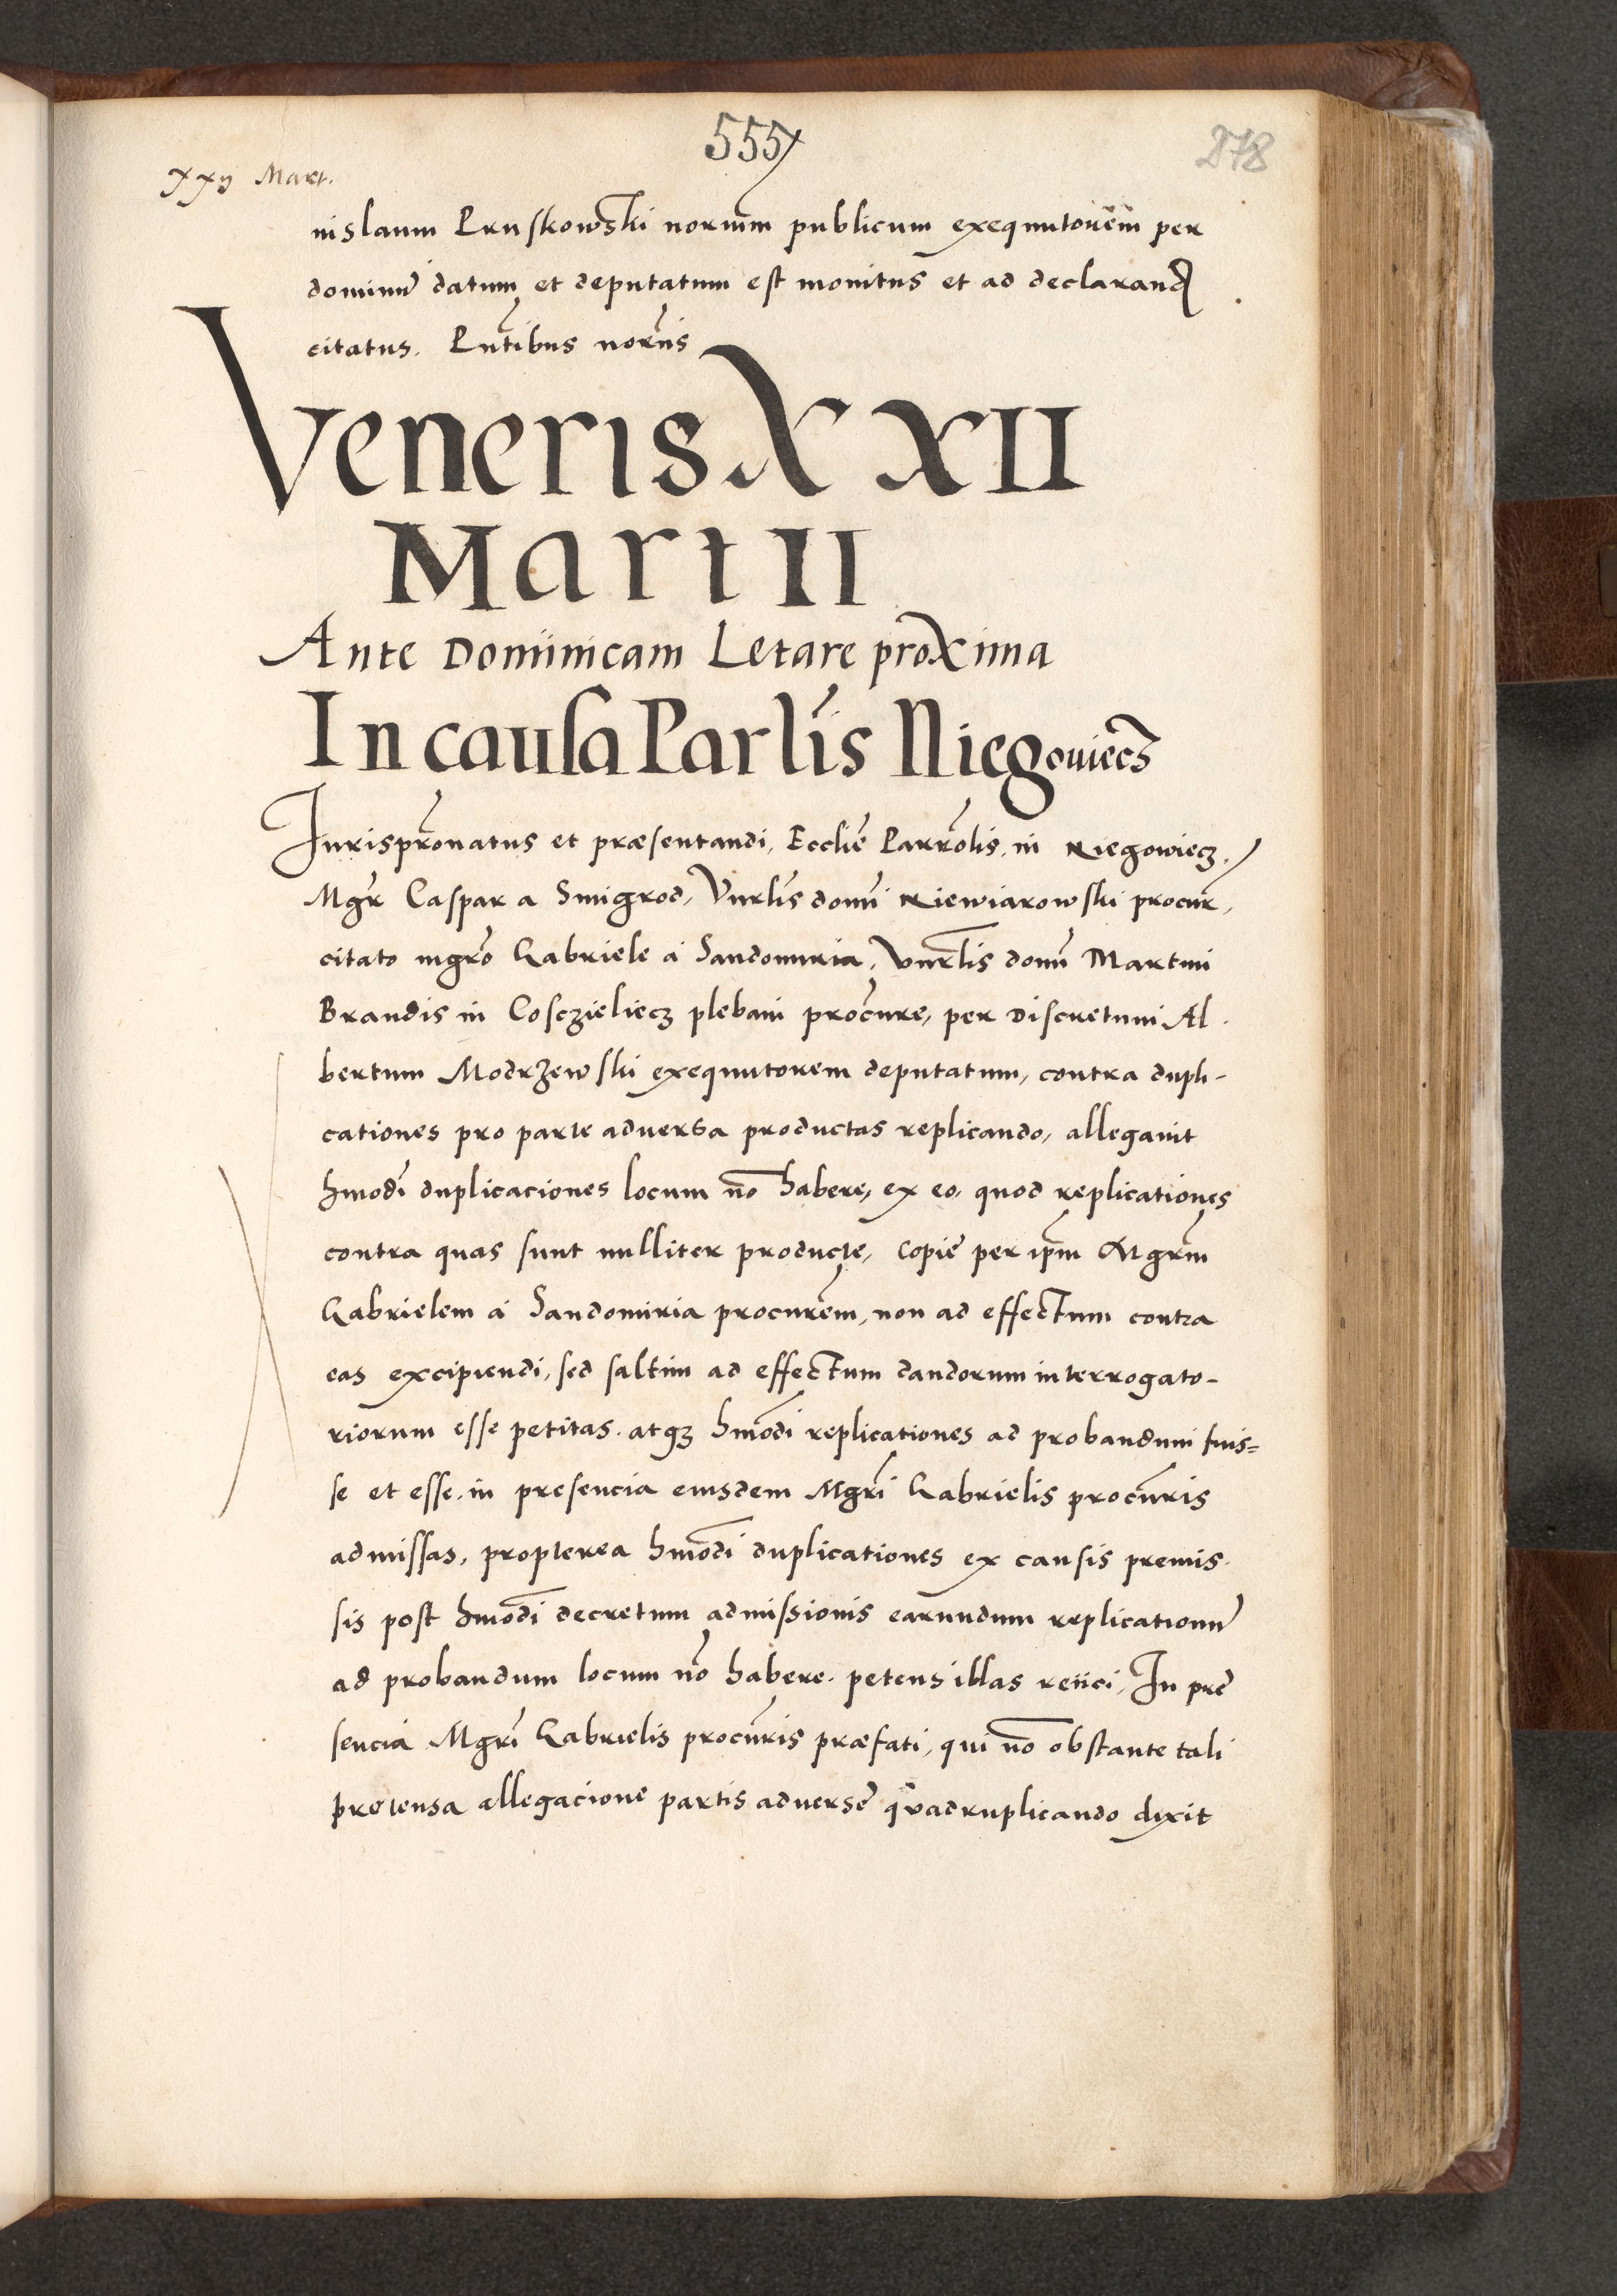 555
278
xxij Mart.
nislaum Pruskowski noriũm publicum exequutorem per
dominũ datum et deputatum est monitus et ad declarand
citatus. Pñtibus norijs
Veneris XXII
Martii
Ante Dominicam Letare proxima
In causa Parlis Niegoviecz
Jurispronatus et præsentandi, Ecclie Parrolis, in Niegowiecz.
Mgr Caspar a Smigrod, Vnrlis domi Niewiarowski procur,
citato mgro Gabriele á Sandomiria, Vnrlis domi Martini
Brandis in Cosczieliecz plebani procure, per Discretum Al
bertum Modrzewski exequutorem deputatum, contra dupli-
cationes pro parte adversa productas replicando, allegavit
hmodi duplicaciones locum nõ habere, ex eo, quod replicationes
contra quas sunt nulliter producte, copie per ipm Mgrm
Gabrielem á Sandomiria procurem, non ad effectum contra
eas excipiendi, sed saltim ad effectum dandorum interrogato-
riorum esse petitas. atqz hmodi replicationes ad probandum fuis=
se et esse, in presencia eiusdem Mgri Gabrielis procuris
admissas, propterea hmodi duplicationes ex causis premis
sis post hmodi decretum admissionis earundum replicationũ
ad probandum locum nõ habere. petens illas reiici, In pre
sencia Mgri Gabrielis procuris præfati, qui nõ obstante tali
pretensa allegacione partis adverse quadruplicando dixit